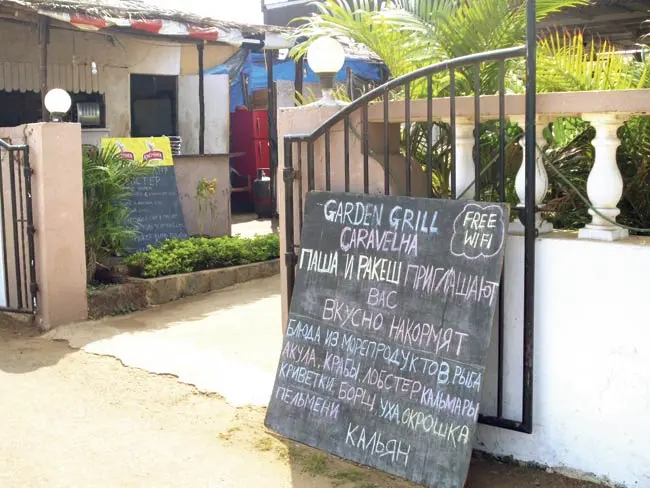 GARDEN GRILL
CARAVELHA
FREE
WIFI
ПАША И РАКЕШ ПРИГЛАШАЮТ
ВАС
ВКУСНО НАКОРМЯТ
БЛЮДА ИЗ МОРЕПРОДУКТОВ РЫБА
АКУЛА, КРАБЫ ЛОБСТЕР, КАЛЬМАРЫ
КРИВЕТКИ, БОРЩ, УХА ОКРОШКА
ПЕЛЬМЕНИ
КАЛЬЯН